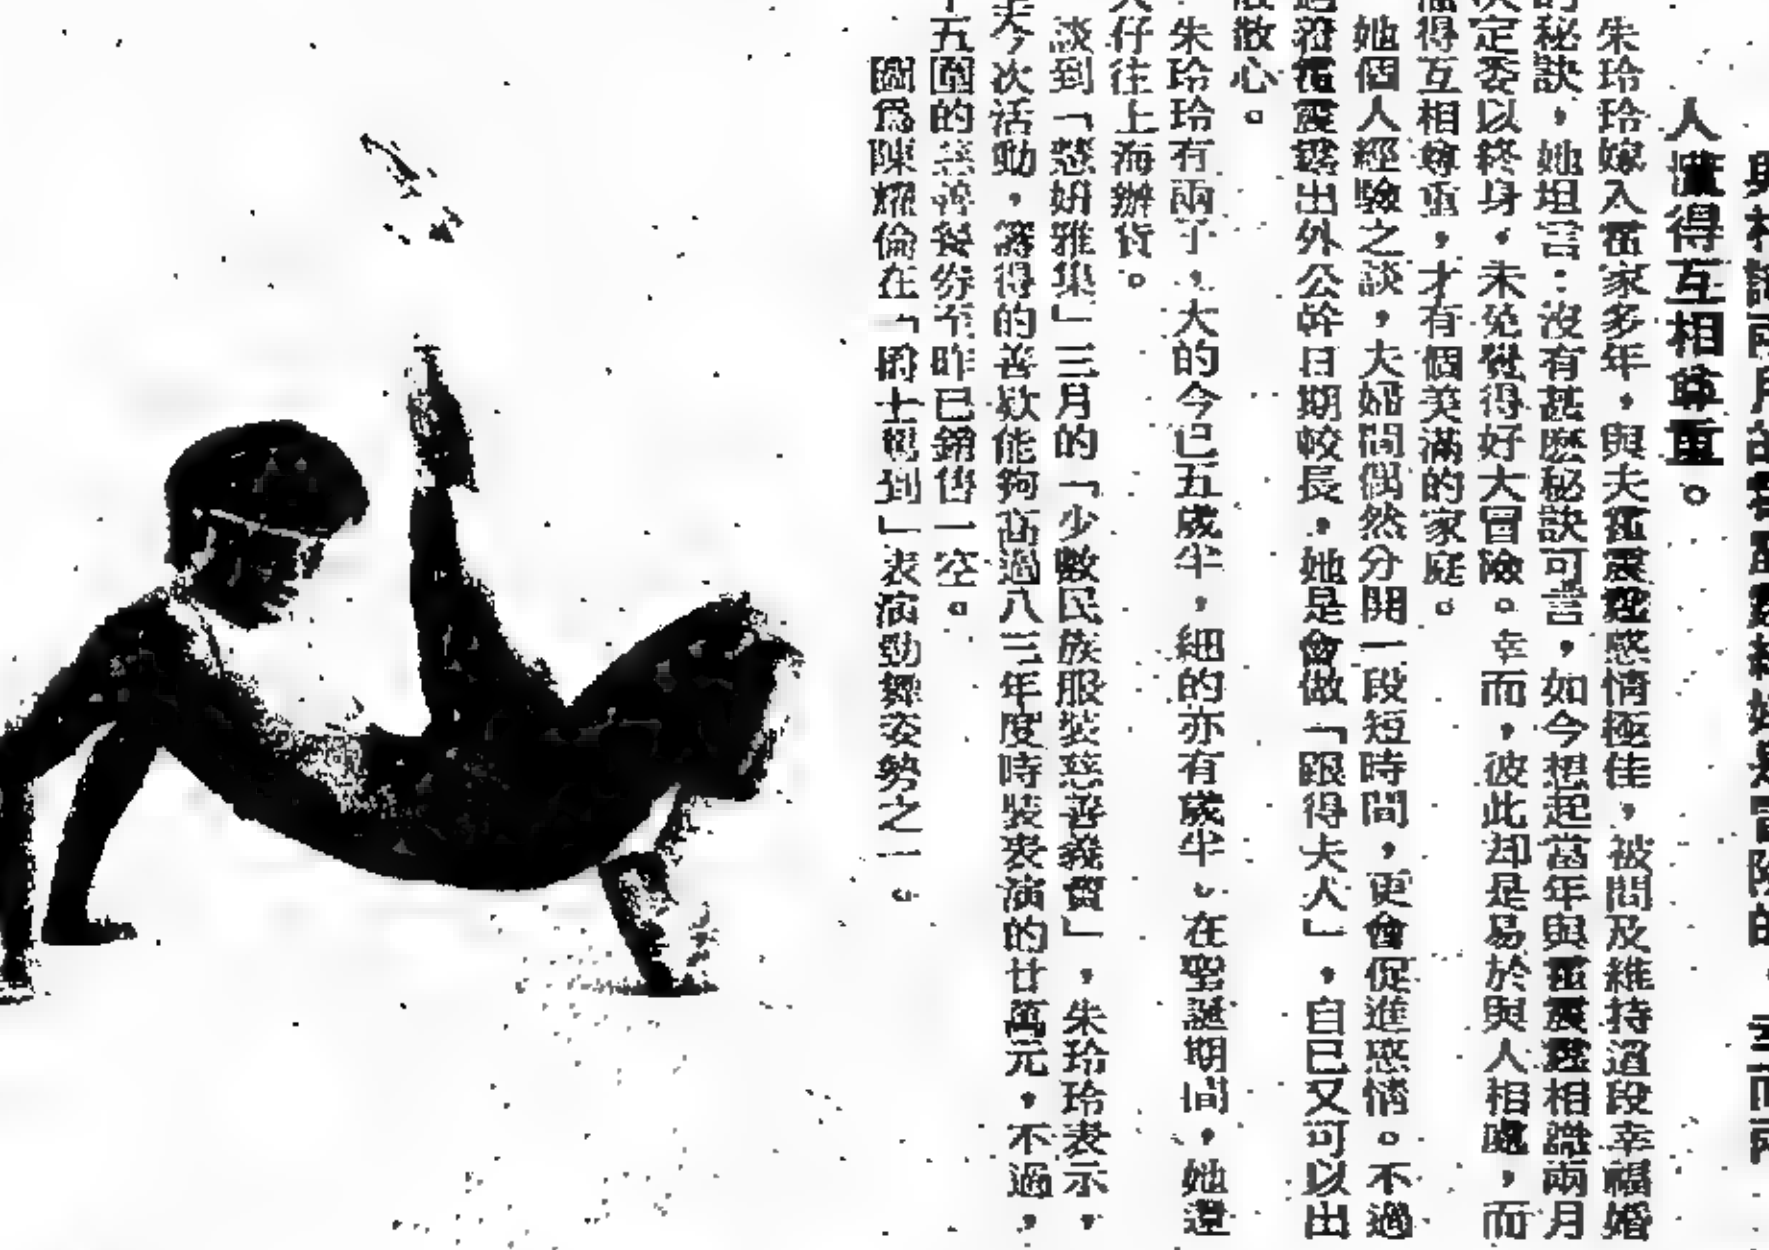 與相識兩月的霍震霆結婚是冒險的。幸而兩
人懂得互相尊重。
朱玲玲嫁入霍家多年，與夫霍震霆感情極佳，被問及維持這段幸福婚
的秘訣，她坦言：沒有甚麽秘訣可言，如今想起當年與霍震霆相識兩月
決定委以終身，未免覺得好大冒險。幸而，彼此却是易於與人相處，而
懂得互相尊重，才有個美滿的家庭。
她個人經驗之談，夫婦間偶然分開一段短時間，更會促進感情。不過
霍震霆出外公幹日期較長，她是會做「跟得夫人」，自已又可以出
散心。
朱玲玲有兩子，大的今已五歲半，細的亦有歲半。在聖誕期間，她還
仔往上海辦貨。
談到「慈姸雅集」三月的「少數民族服裝慈善義賣」，朱玲玲表示，
今次活動，籌得的善欵能夠高過八三年度時裝表演的廿萬元，不過，
五圍的慈善餐券至昨已銷售一空。
圖爲陳耀倫在「爵士報到」表演勁舞姿勢之一。